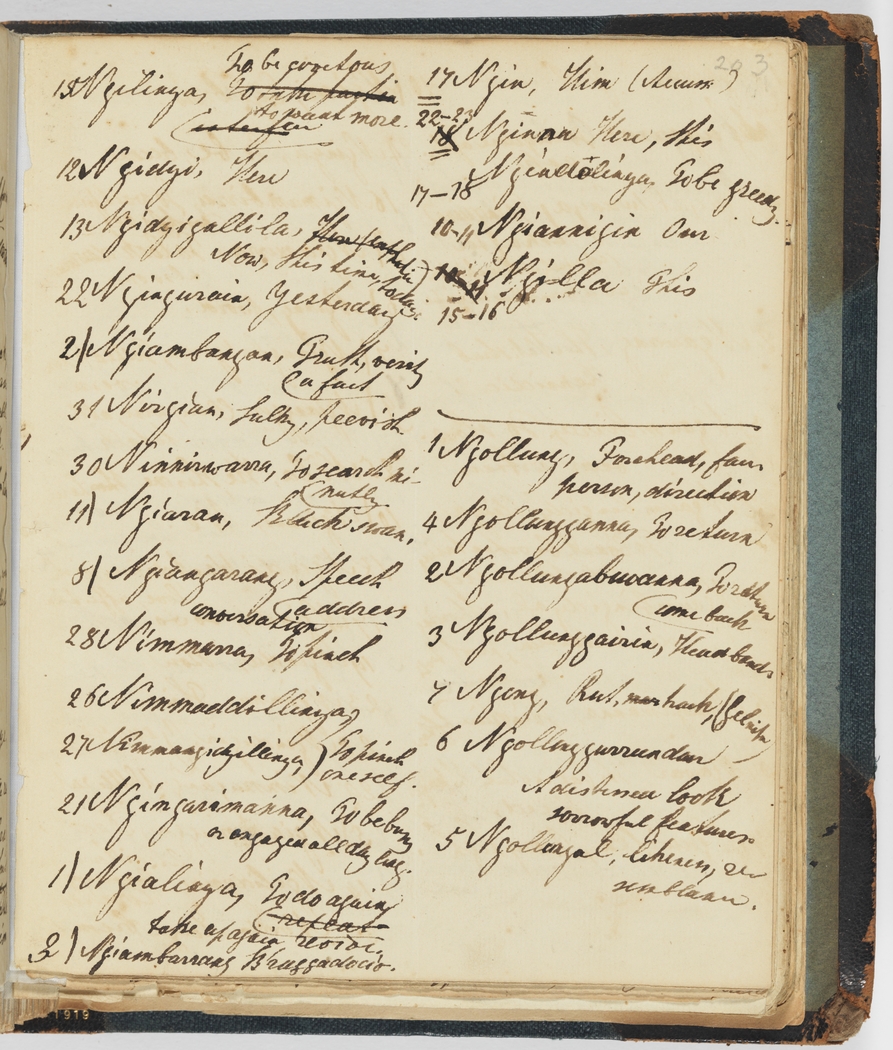 203
To be covetous
15 Ngilinga,
to want more.
12 Ngidyi, Here
13 Ngidyigallila,
Now, this time, today.
22 Ngingurain, Yesterday
2) Ngiambangan, Truth, verity
a fact
31 Nirgian, Sulky, peevish
30 Ninnirwarra, To search mi-
nutely
11) Ngiaran, Black swan,
8) Ngiangarang, Speech
conversation address
28 Nimmarra, To pinch
26 Nimmaddillinga,
27 Nimmangidyillinga, To pinch
oneself.
21 Ngingarimanna, To be busy
or engaged all day long.
1) Ngialinga, To do again,
repeat
take up again
3) Ngiambarrang Braggadocio.
17 Ngin, Him (Accus.)
22-23
18 Nginan Here, this
17-18 Ngindalinga, To be greedy.
10-11 Ngiannigin Our
10-11 Ngilla This
15-16
1 Ngollung, Forehead, face
person, direction
4 Ngollungganna, To return
2 Ngollungabuoanna, To return
come back
3 Ngollunggairin, Headbands
7 Ngong, Rut,
6 Ngollunggurrundan
A distressed look
sorrowful features
5 Ngollungal, likeness, re-
semblance.
1919